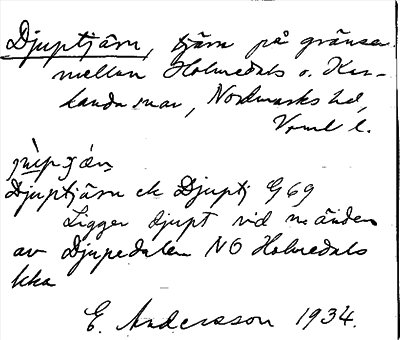 Djuptjärn, tjärn på gränsen
mellan Holmedals o. Kar-
landa snar, Nordmarks hd,
Vrml l.
Djuptjärn ek Djuptj G 69
Ligger djupt vid n. änden
av Djupedalen NO Holmedals
kka
E. Andersson 1934.